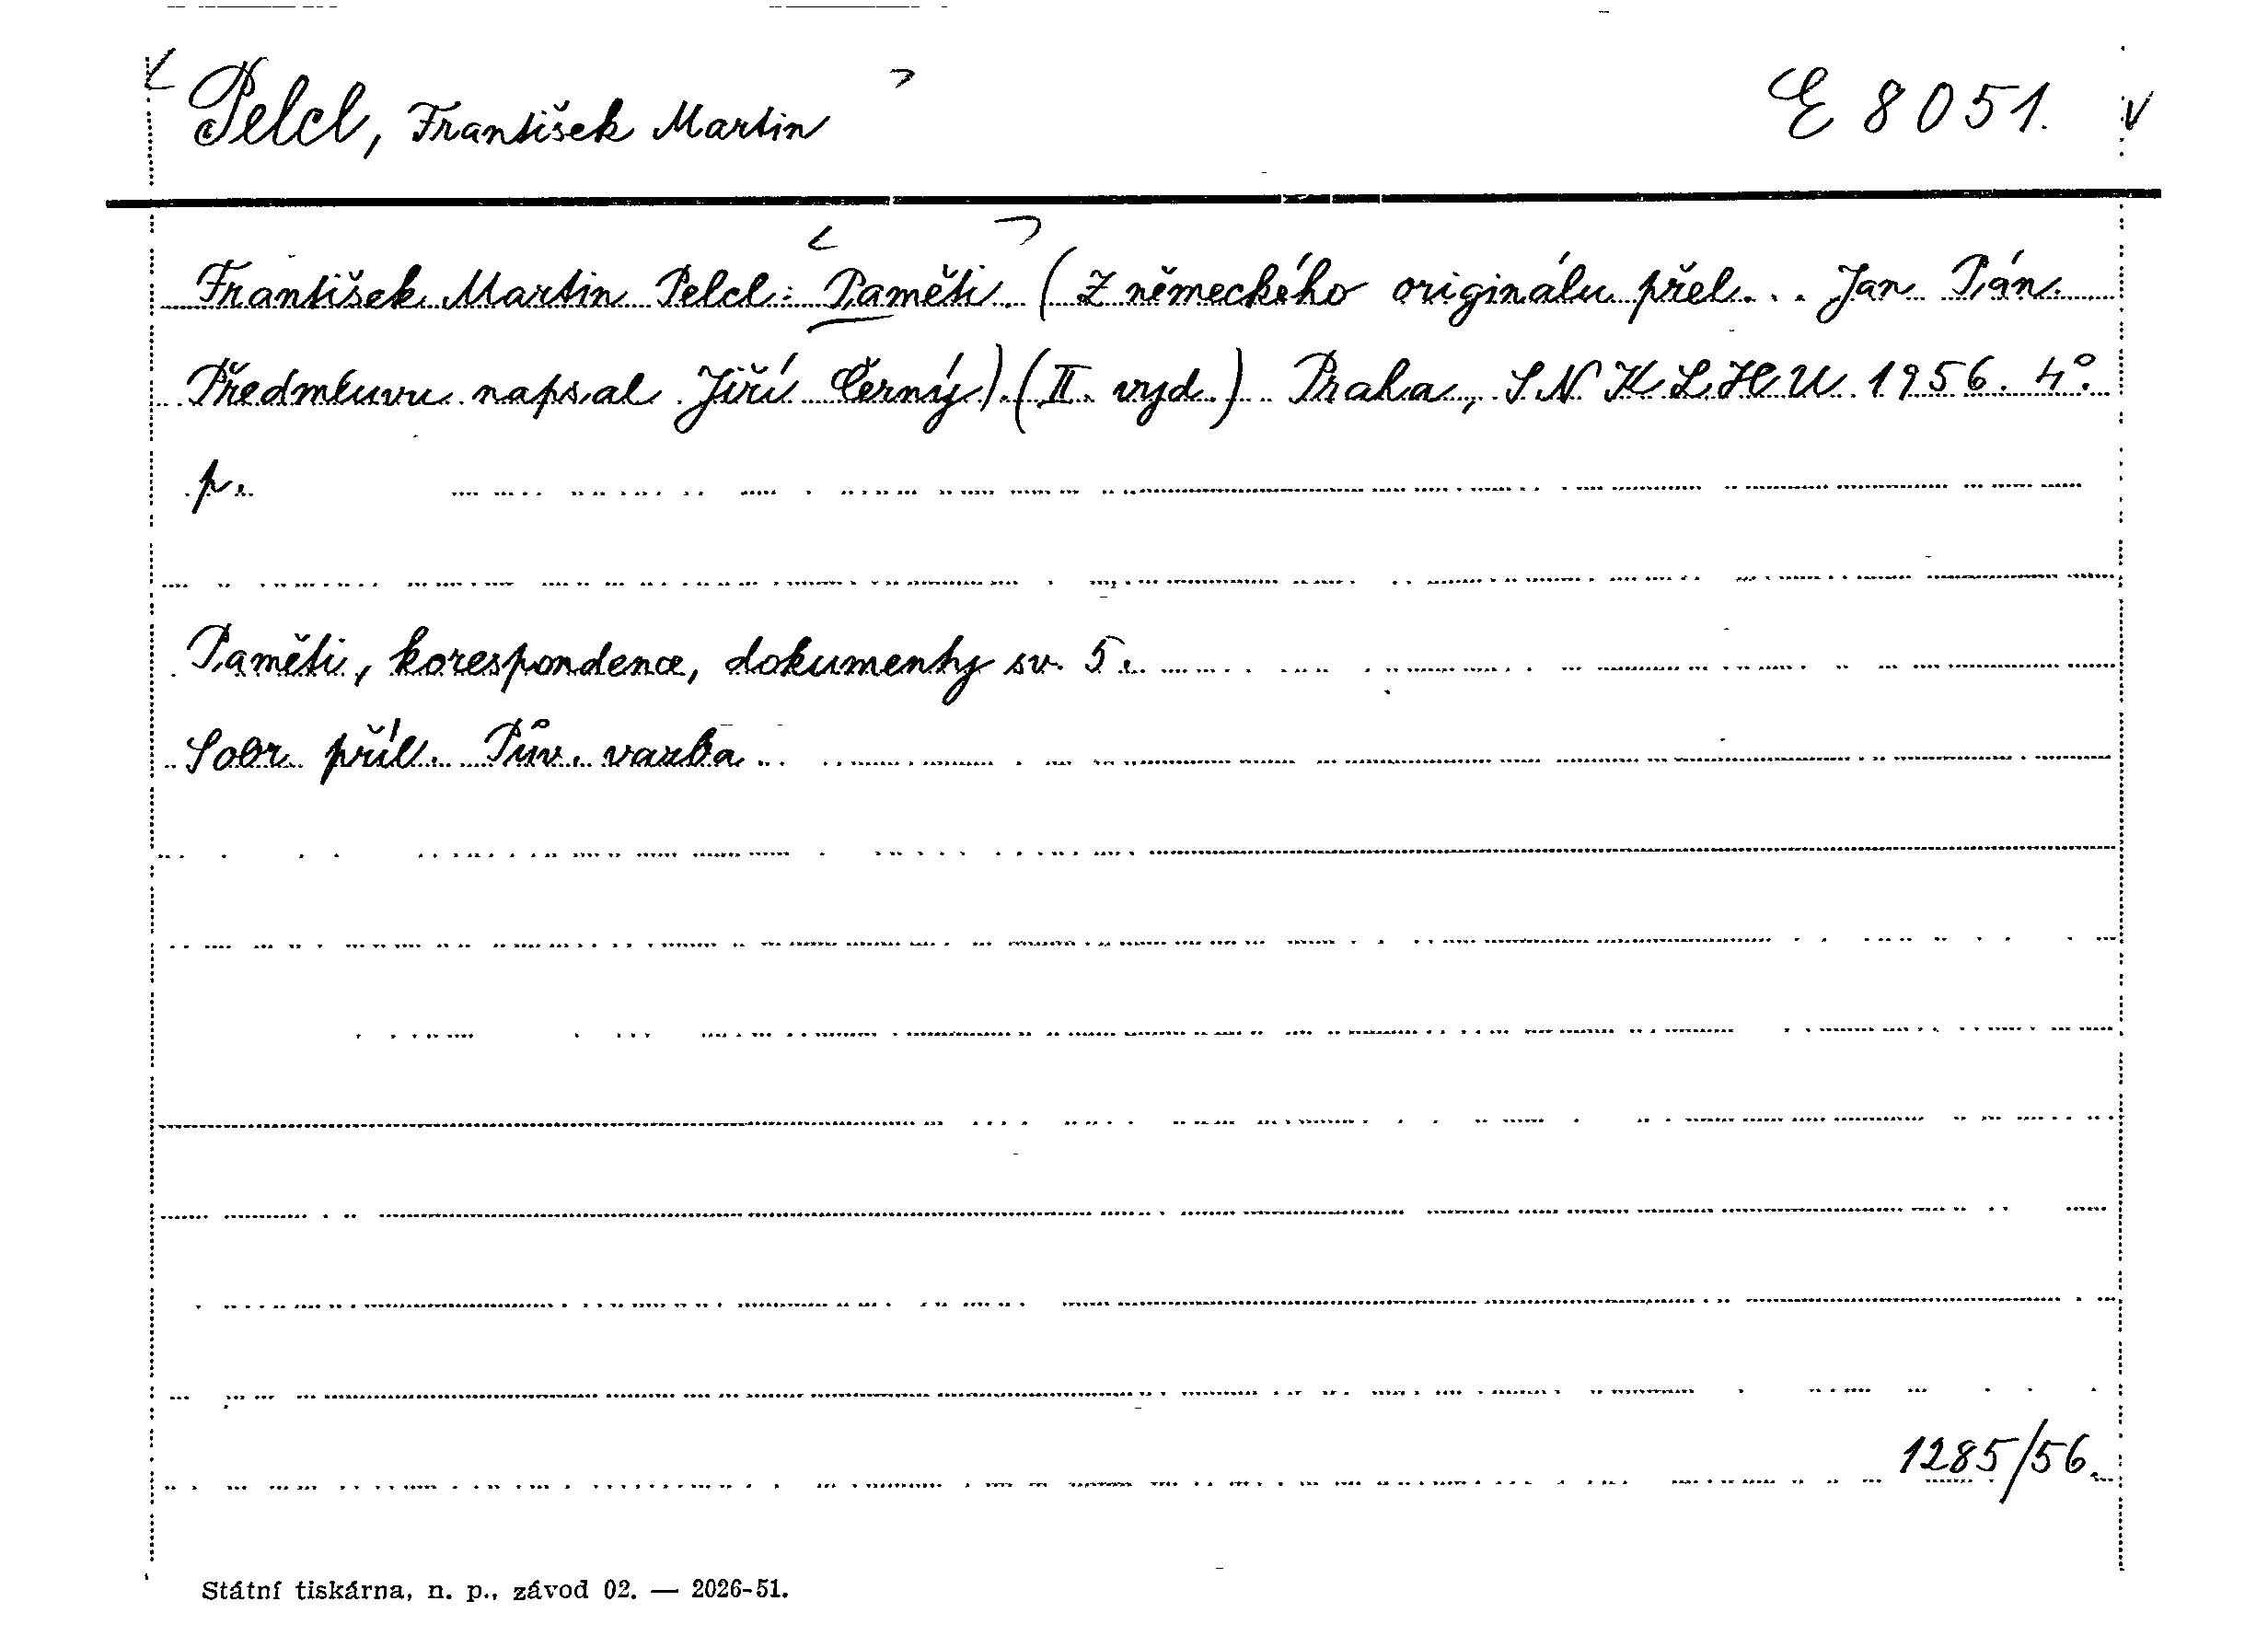 < Pelcl, František Martin > E 8051. v
František Martin Pelcl: <Paměti> (Z německého originálu přel... Jan Pán.
Předmluvu napsal Jiří Černý) (II. vyd.) Praha, SNKLHU 1956. 4°.
p.
Paměti, korespondence, dokumenty sv. 5.
Sobr. příl. Pův. vazba.
1285/56.
Státní tiskárna, n. p., závod 02. — 2026-51.